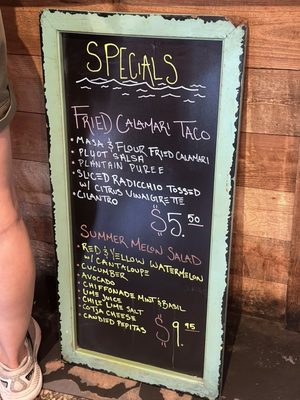 SPECIALS
FRIED CALAMARI TACO
• MASA & FLOUR FRIED CALAMARI
• PLUOT SALSA
• PLANTAIN PUREE
• SLICED RADICCHIO TOSSED
W/ CITRUS VINAIGRETTE
• CILANTRO
$5.50
SUMMER MELON SALAD
• RED & YELLOW WATERMELON
W/ CANTALOUPE
• CUCUMBER
• AVOCADO
• CHIFFONADE MINT & BASIL
• LIME JUICE
• CHILE LIME SALT
• COTJA CHEESE
• CANDIED PEPITAS
$9.95